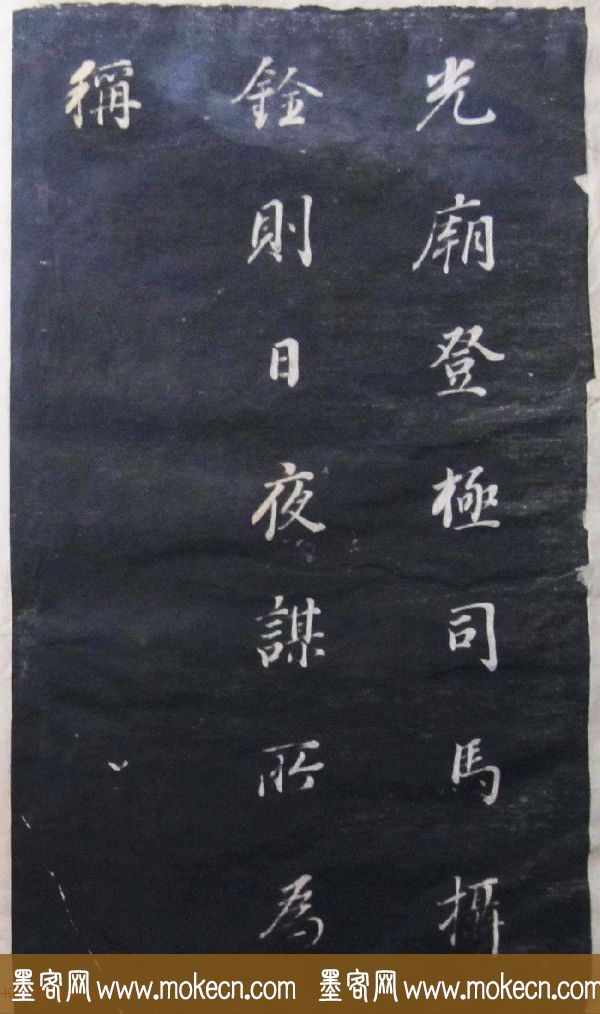 光廟登極司馬攝
銓則日夜謀所為
稱
墨客网 www.mokecn.com 墨客网 www.mokecn.com